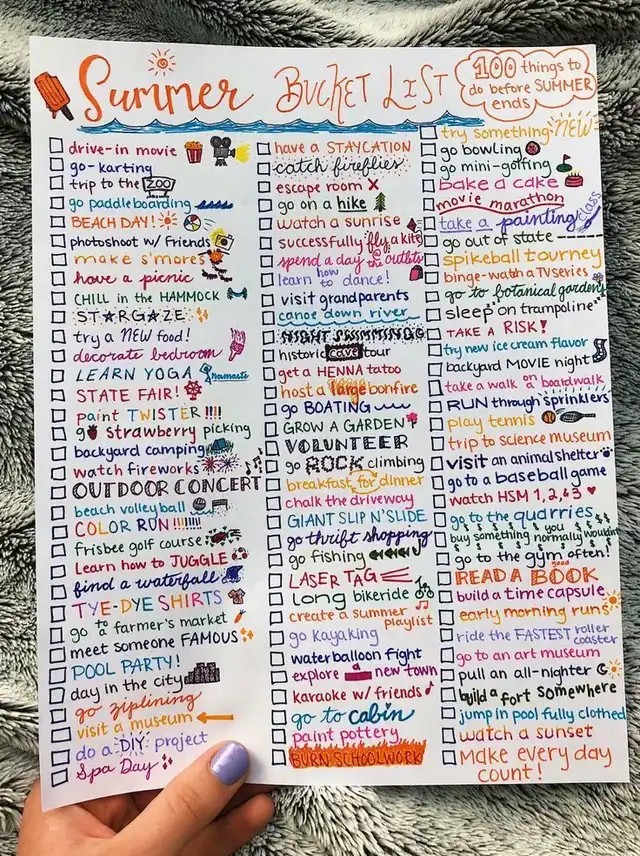 Summer BUCKET LIST
100 things to
do before SUMMER
ends
drive-in movie
go-karting
trip to the ZOO
go paddleboarding
BEACH DAY!
photoshoot w/ friends
make s'mores
have a picnic
CHILL in the HAMMOCK
STARGAZE
try a NEW food!
decorate bedroom
LEARN YOGA namaste
STATE FAIR!
paint TWISTER !!!!
go strawberry picking
backyard camping
watch fireworks
OUTDOOR CONCERT
beach volleyball
COLOR RUN!!!!!!!
frisbee golf course
learn how to JUGGLE
find a waterfall
TYE-DYE SHIRTS
go to a farmer's market
meet someone FAMOUS
POOL PARTY!
day in the city
go ziplining
visit a museum
do a DIY project
Spa Day
have a STAYCATION
catch fireflies
escape room
go on a hike
watch a sunrise
successfully fly a kite
spend a day @ the outlets
learn how to dance!
visit grandparents
canoe down river
NIGHT SWIMMING
historic cave tour
get a HENNA tattoo
host a large bonfire
go BOATING
GROW A GARDEN
VOLUNTEER
go ROCK climbing
breakfast for dinner
chalk the driveway
GIANT SLIP N' SLIDE
go thrift shopping
go fishing
LASER TAG
long bikeride
create a summer
playlist
go kayaking
waterballoon fight
explore a new town
karaoke w/ friends
go to cabin
paint pottery
BURN SCHOOLWORK
try something NEW
go bowling
go mini-golfing
bake a cake
movie marathon
take a painting class
go out of state
spikeball tourney
binge-watch a TV series
go to botanical gardens
sleep on trampoline
TAKE A RISK!
try new ice cream flavor
backyard MOVIE night
take a walk on boardwalk
RUN through sprinklers
play tennis
trip to science museum
visit an animal shelter
go to a baseball game
watch HSM 1, 2, & 3
go to the quarries
buy something you normally wouldn't
go to the gym often!
READ A good BOOK
build a time capsule
early morning runs
ride the FASTEST roller
coaster
go to an art museum
pull an all-nighter
build a fort somewhere
jump in pool fully clothed
watch a sunset
Make every day
count!